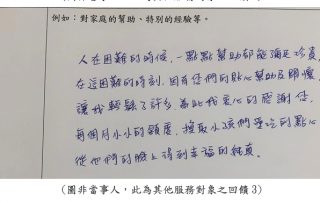 例如：對家庭的幫助、特別的經驗等。
人在困難的時候，一點點幫助都能彌足珍貴
在這困難的時刻，因有你們的貼心幫助及關懷
讓我輕鬆了許多，為此我衷心的感謝你
每個月小小的額度，換取小孩們愛吃的點心
從他們的臉上得到幸福的純真。
(圖非當事人，此為其他服務對象之回饋 3)